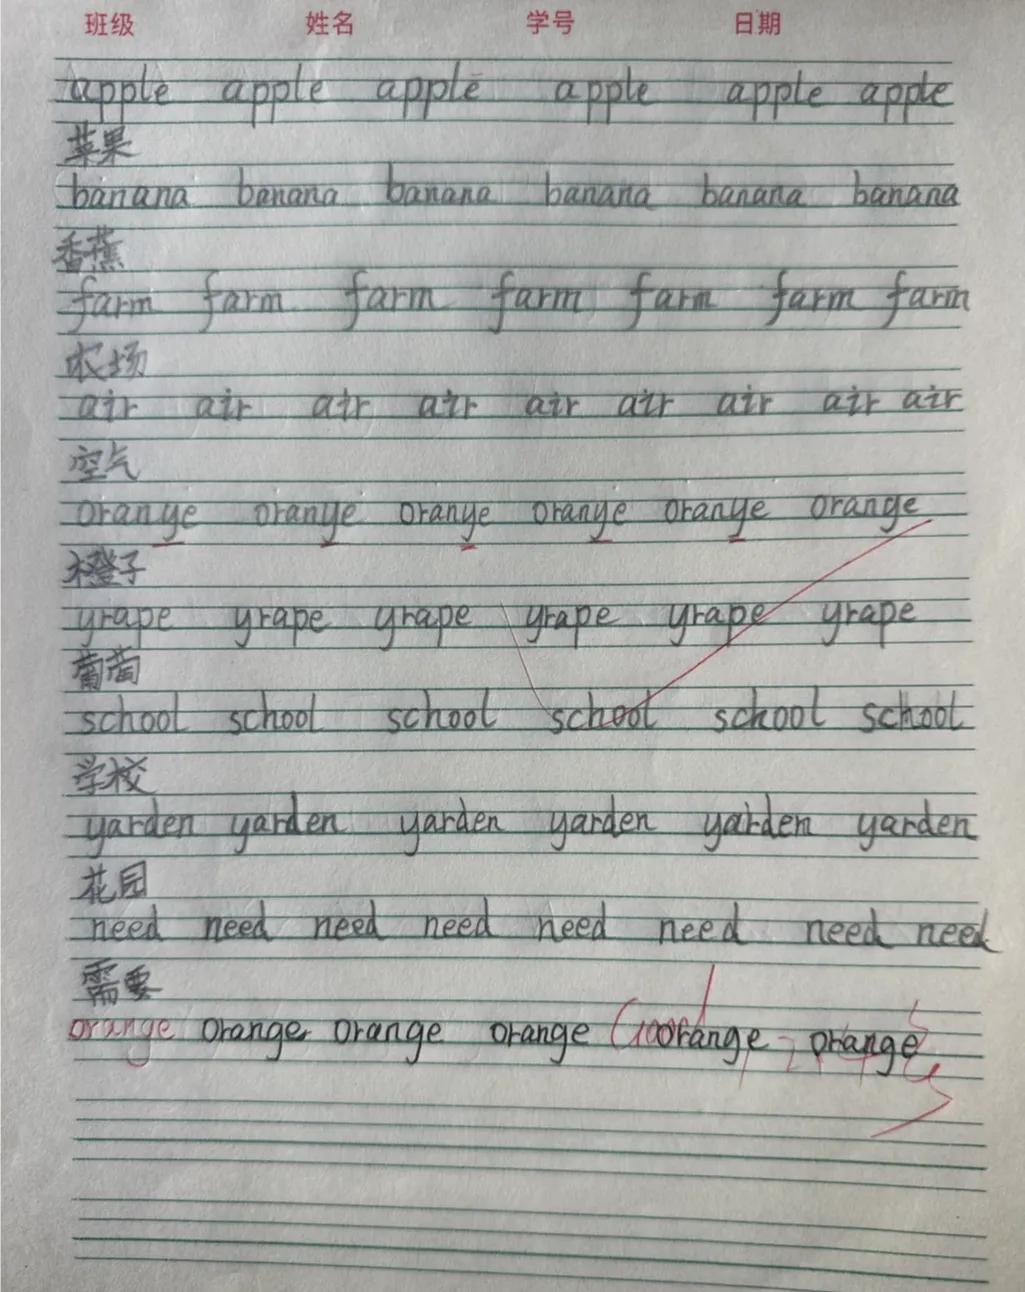 班级 姓名 学号 日期
apple apple apple apple apple apple
苹果
banana banana banana banana banana banana
香蕉
farm farm farm farm farm farm farm
农场
air air air air air air air air air
空气
oranye oranye oranye oranye oranye orange
橙子
yrape yrape yrape yrape yrape yrape
葡萄
school school school school school school
学校
yarden yarden yarden yarden yarden yarden
花园
need need need need need need need need
需要
orange orange orange orange orange orange